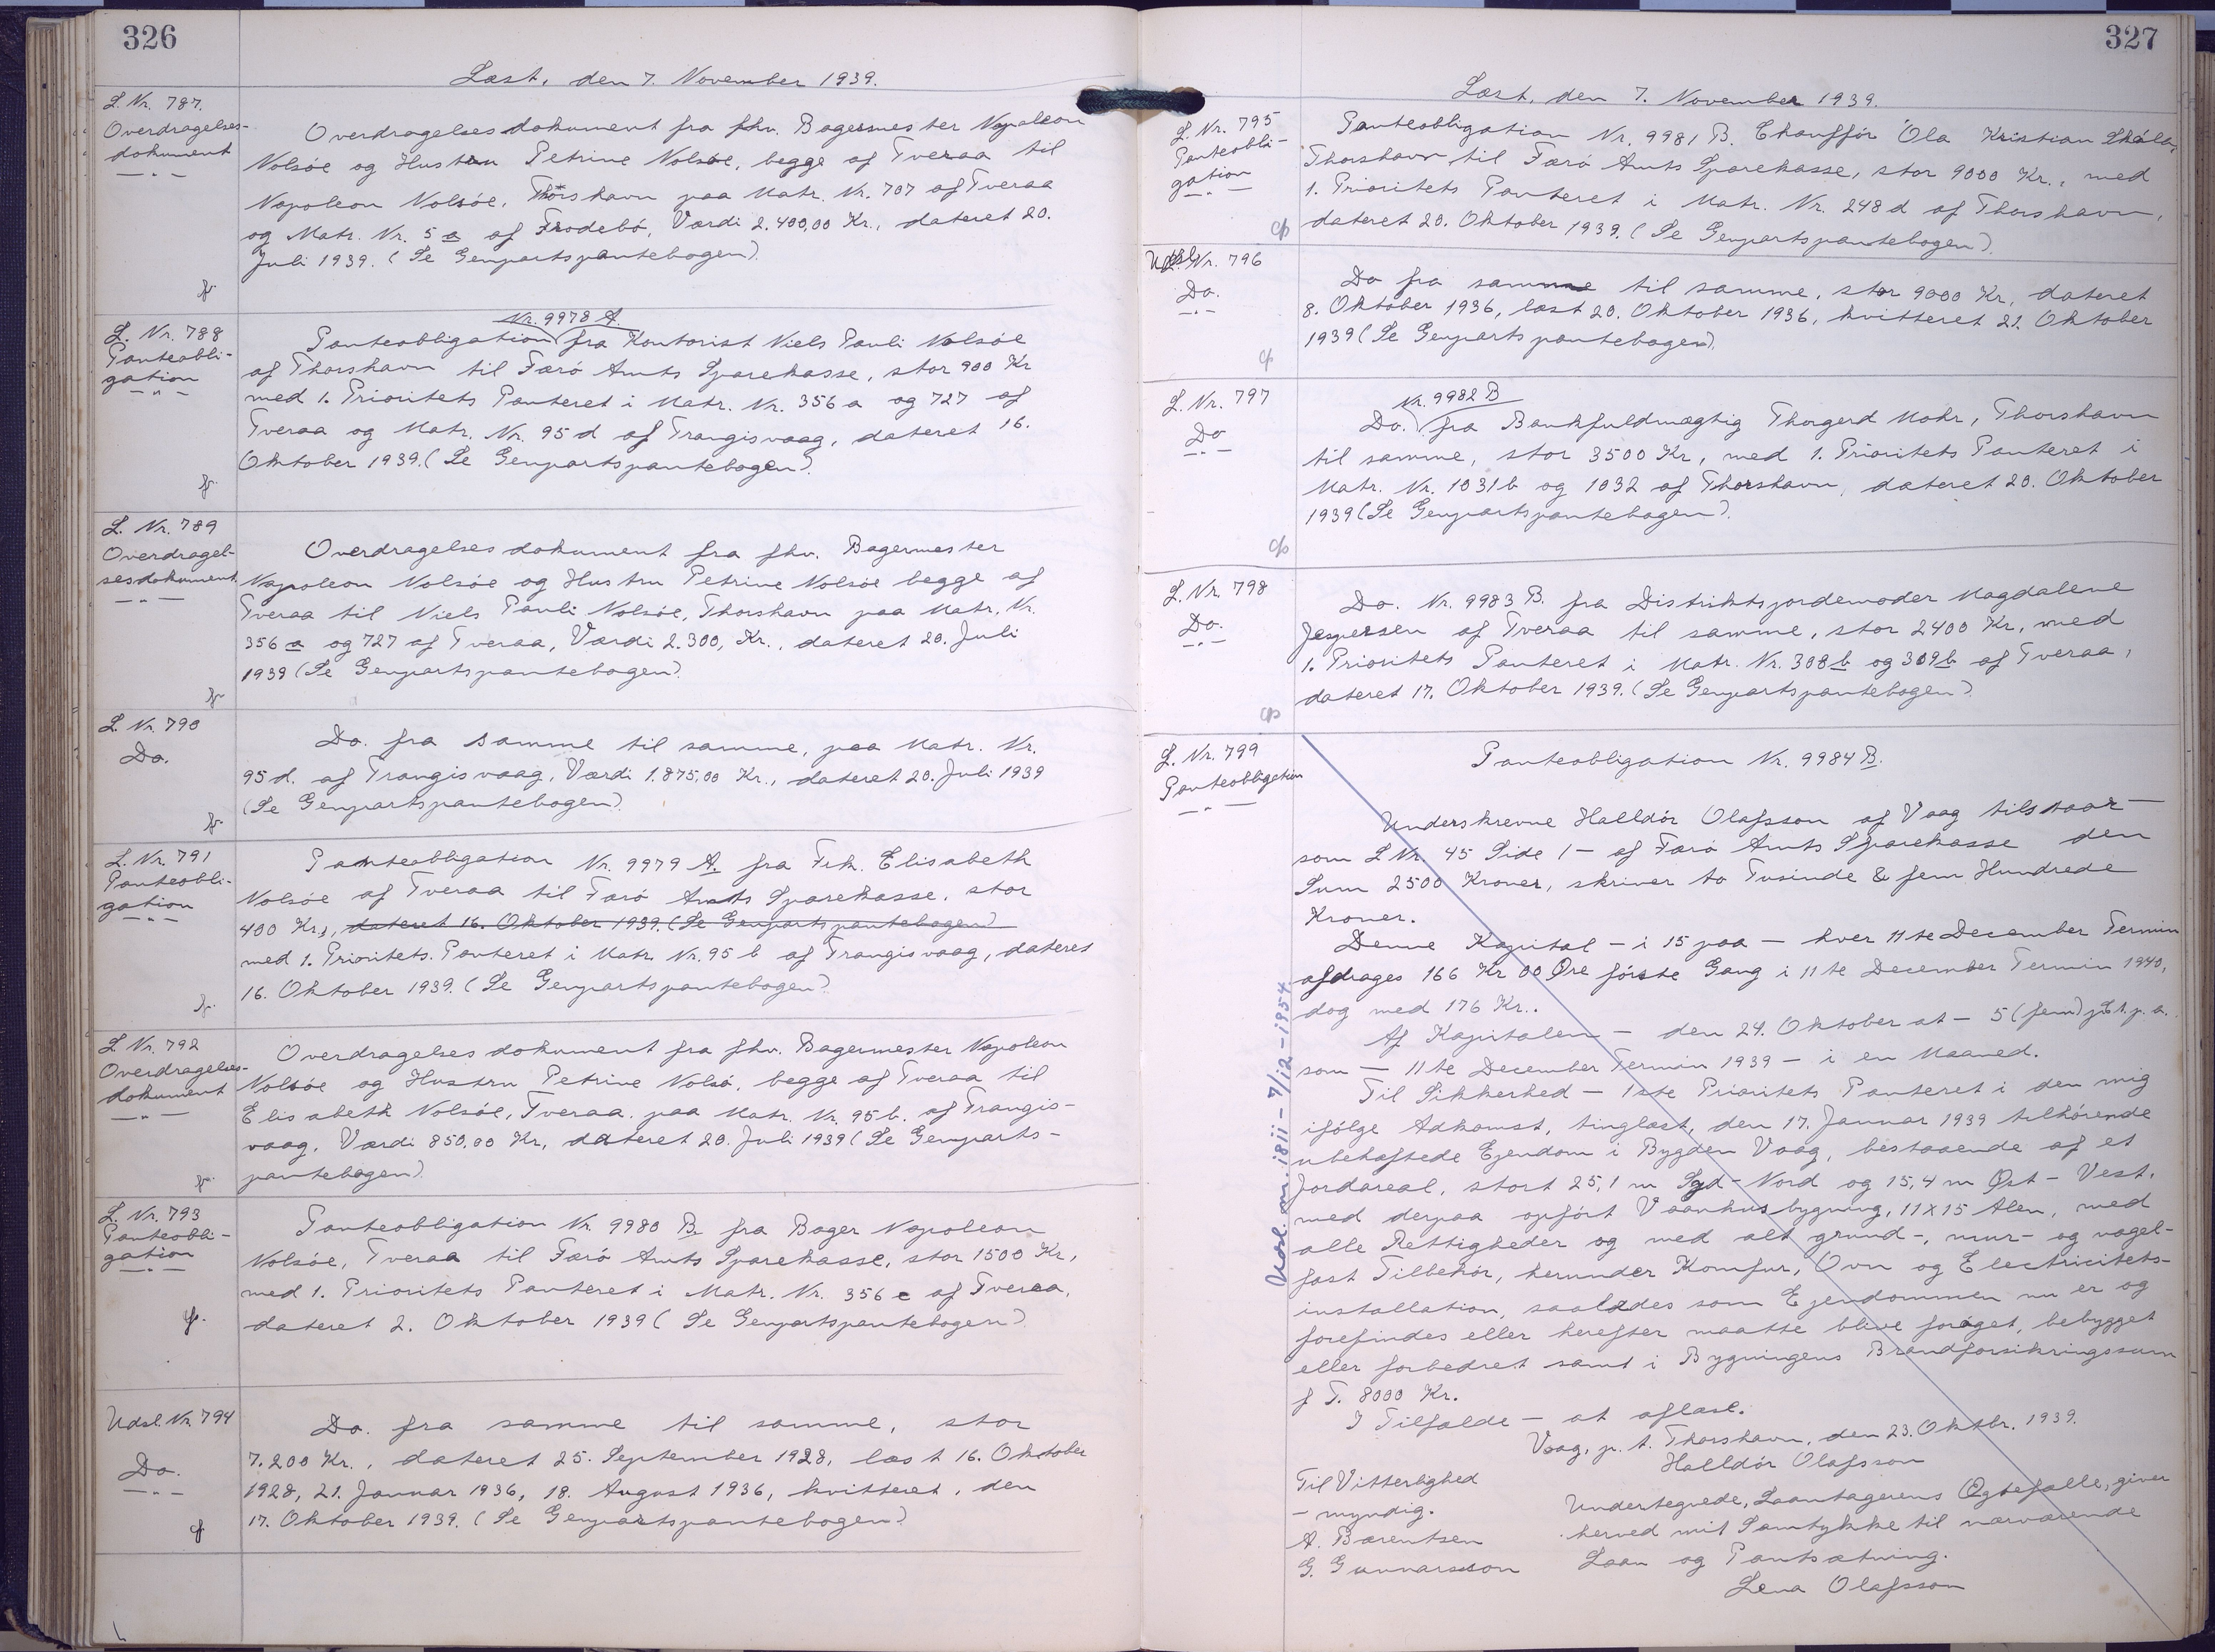 326
Læst, den 7. November 1939.
L. Nr. 787.
Overdragelses-
dokument
Overdragelsesdokument fra fhv. Bagermester Napoleon
Nolsøe og Hustru Petrine Nolsøe, begge af Tveraa til
Napoleon Nolsøe, Thorshavn paa Matr. Nr. 707 af Tveraa
og Matr. Nr. 5 a af Frodebø, Værdi 2.400,00 Kr., dateret 20.
Juli 1939. (Se Genpartspantebogen).
L. Nr. 788
Panteobli-
gation
Nr. 9978 A.
Panteobligation fra Kontorist Niels Pauli Nolsøe
af Thorshavn til Færø Amts Sparekasse, stor 900 Kr
med 1. Prioritets Panteret i Matr. Nr. 356 a og 727 af
Tveraa og Matr. Nr. 95 d af Trangisvaag, dateret 16.
Oktober 1939. (Se Genpartspantebogen).
L. Nr. 789
Overdragel-
sesdokument
Overdragelsesdokument fra fhv. Bagermester
Napoleon Nolsøe og Hustru Petrine Nolsøe begge af
Tveraa til Niels Pauli Nolsøe, Thorshavn paa Matr. Nr.
356 a og 727 af Tveraa, Værdi 2.300, Kr., dateret 20. Juli
1939 (Se Genpartspantebogen).
L. Nr. 790
Do.
Do. fra samme til samme, paa Matr. Nr.
95 d. af Trangisvaag, Værdi 1.875,00 Kr., dateret 20. Juli 1939
(Se Genpartspantebogen).
L. Nr. 791
Panteobli-
gation
Panteobligation Nr. 9979 A. fra Frk. Elisabeth
Nolsøe af Tveraa til Færø Amts Sparekasse, stor
400 Kr., dateret 16. Oktober 1939. (Se Genpartspantebogen)
med 1. Prioritets. Panteret i Matr. Nr. 95 b af Trangisvaag, dateret
16. Oktober 1939. (Se Genpartspantebogen).
L. Nr. 792
Overdragelses-
dokument
Overdragelsesdokument fra fhv. Bagermester Napoleon
Nolsøe og Hustru Petrine Nolsø, begge af Tveraa til
Elisabeth Nolsøe, Tveraa. paa Matr. Nr. 95 b. af Trangis-
vaag, Værdi 850,00 Kr, dateret 20. Juli 1939 (Se Genparts-
pantebogen).
L. Nr. 793
Panteobli-
gation
Panteobligation Nr. 9980 B. fra Bager Napoleon
Nolsøe, Tveraa til Færø Amts Sparekasse, stor 1500 Kr,
med 1. Prioritets Panteret i Matr. Nr. 356 c af Tveraa,
dateret 2. Oktober 1939 (Se Genpartspantebogen).
Udsl. Nr. 794
Do.
Do. fra samme til samme, stor
7.200 Kr., dateret 25. September 1928, læst 16. Oktober
1928, 21. Januar 1936, 18. August 1936, kvitteret, den
17. Oktober 1939. (Se Genpartspantebogen)
327
Læst, den 7. November 1939.
L. Nr. 795
Panteobli-
gation
Panteobligation Nr. 9981 B. Chauffør Ola Kristian Skåla,
Thorshavn, til Færø Amts Sparekasse, stor 9000 Kr., med
1. Prioritets Panteret i Matr. Nr. 248 d af Thorshavn,
dateret 20. Oktober 1939. (Se Genpartspantebogen).
Udsl. Nr. 796
Do.
Do fra samme til samme, stor 9000 Kr, dateret
8. Oktober 1936, læst 20. Oktober 1936, kvitteret 21. Oktober
1939 (Se Genpartspantebogen).
L. Nr. 797
Do
Nr. 9982 B
Do. fra Bankfuldmægtig Thorgerd Mohr, Thorshavn
til samme, stor 3500 Kr, med 1. Prioritets Panteret i
Matr. Nr. 1031 b og 1032 af Thorshavn, dateret 20. Oktober
1939 (Se Genpartspantebogen).
L. Nr. 798
Do.
Do. Nr. 9983 B. fra Distriktsjordemoder Magdalene
Jespersen af Tveraa til samme, stor 2400 Kr, med
1. Prioritets Panteret i Matr. Nr. 308 b og 309 b af Tveraa,
dateret 17. Oktober 1939. (Se Genpartspantebogen).
L. Nr. 799
Panteobligation
Panteobligation Nr. 9984 B.
Underskrevne Halldór Olafsson af Vaag tilstaar –
som L Nr. 45 Side 1 – af Færø Amts Sparekasse den
Sum 2500 Kroner, skriver to Tusinde & fem Hundrede
Kroner.
Denne Kapital – i 15 paa – hver 11te December Termin
afdrages 166 Kr 00 Øre første Gang i 11te December Termin 1940,
dog med 176 Kr..
Af Kapitalen – den 24. Oktober at – 5 (fem) pCt. p. a.
som – 11te December Termin 1939 – i en Maaned.
Til Sikkerhed – 1ste Prioritets Panteret i den mig
ifølge Adkomst, tinglæst, den 17. Januar 1939 tilhørende
ubehæftede Ejendom i Bygden Vaag, bestaaende af et
Jordareal, stort 25,1 m Syd-Nord og 15,4 m Øst-Vest,
med derpaa opført Vaanhusbygning, 11 x 15 Alen, med
alle Rettigheder og med alt grund-, mur- og nagel-
fast Tilbehør, herunder Komfur, Ovn og Electricitets-
installation, saaledes som Ejendommen nu er og
forefindes eller herefter maatte blive forøget, bebygget
eller forbedret samt i Bygningens Brandforsikringssum
f T. 8000 Kr.
I Tilfælde – at aflæse.
Vaag, p. t. Thorshavn, den 23. Oktbr. 1939.
Halldór Olafsson
Til Vitterlighed
– myndig.
A. Bærentsen
G. Gunnarsson
Undertegnede, Laantagerens Ægtefælle, giver
herved mit Samtykke til nærværende
Laan og Pantsætning.
Lena Olafsson
Udsl. m. 1811 – 7/12 – 1954